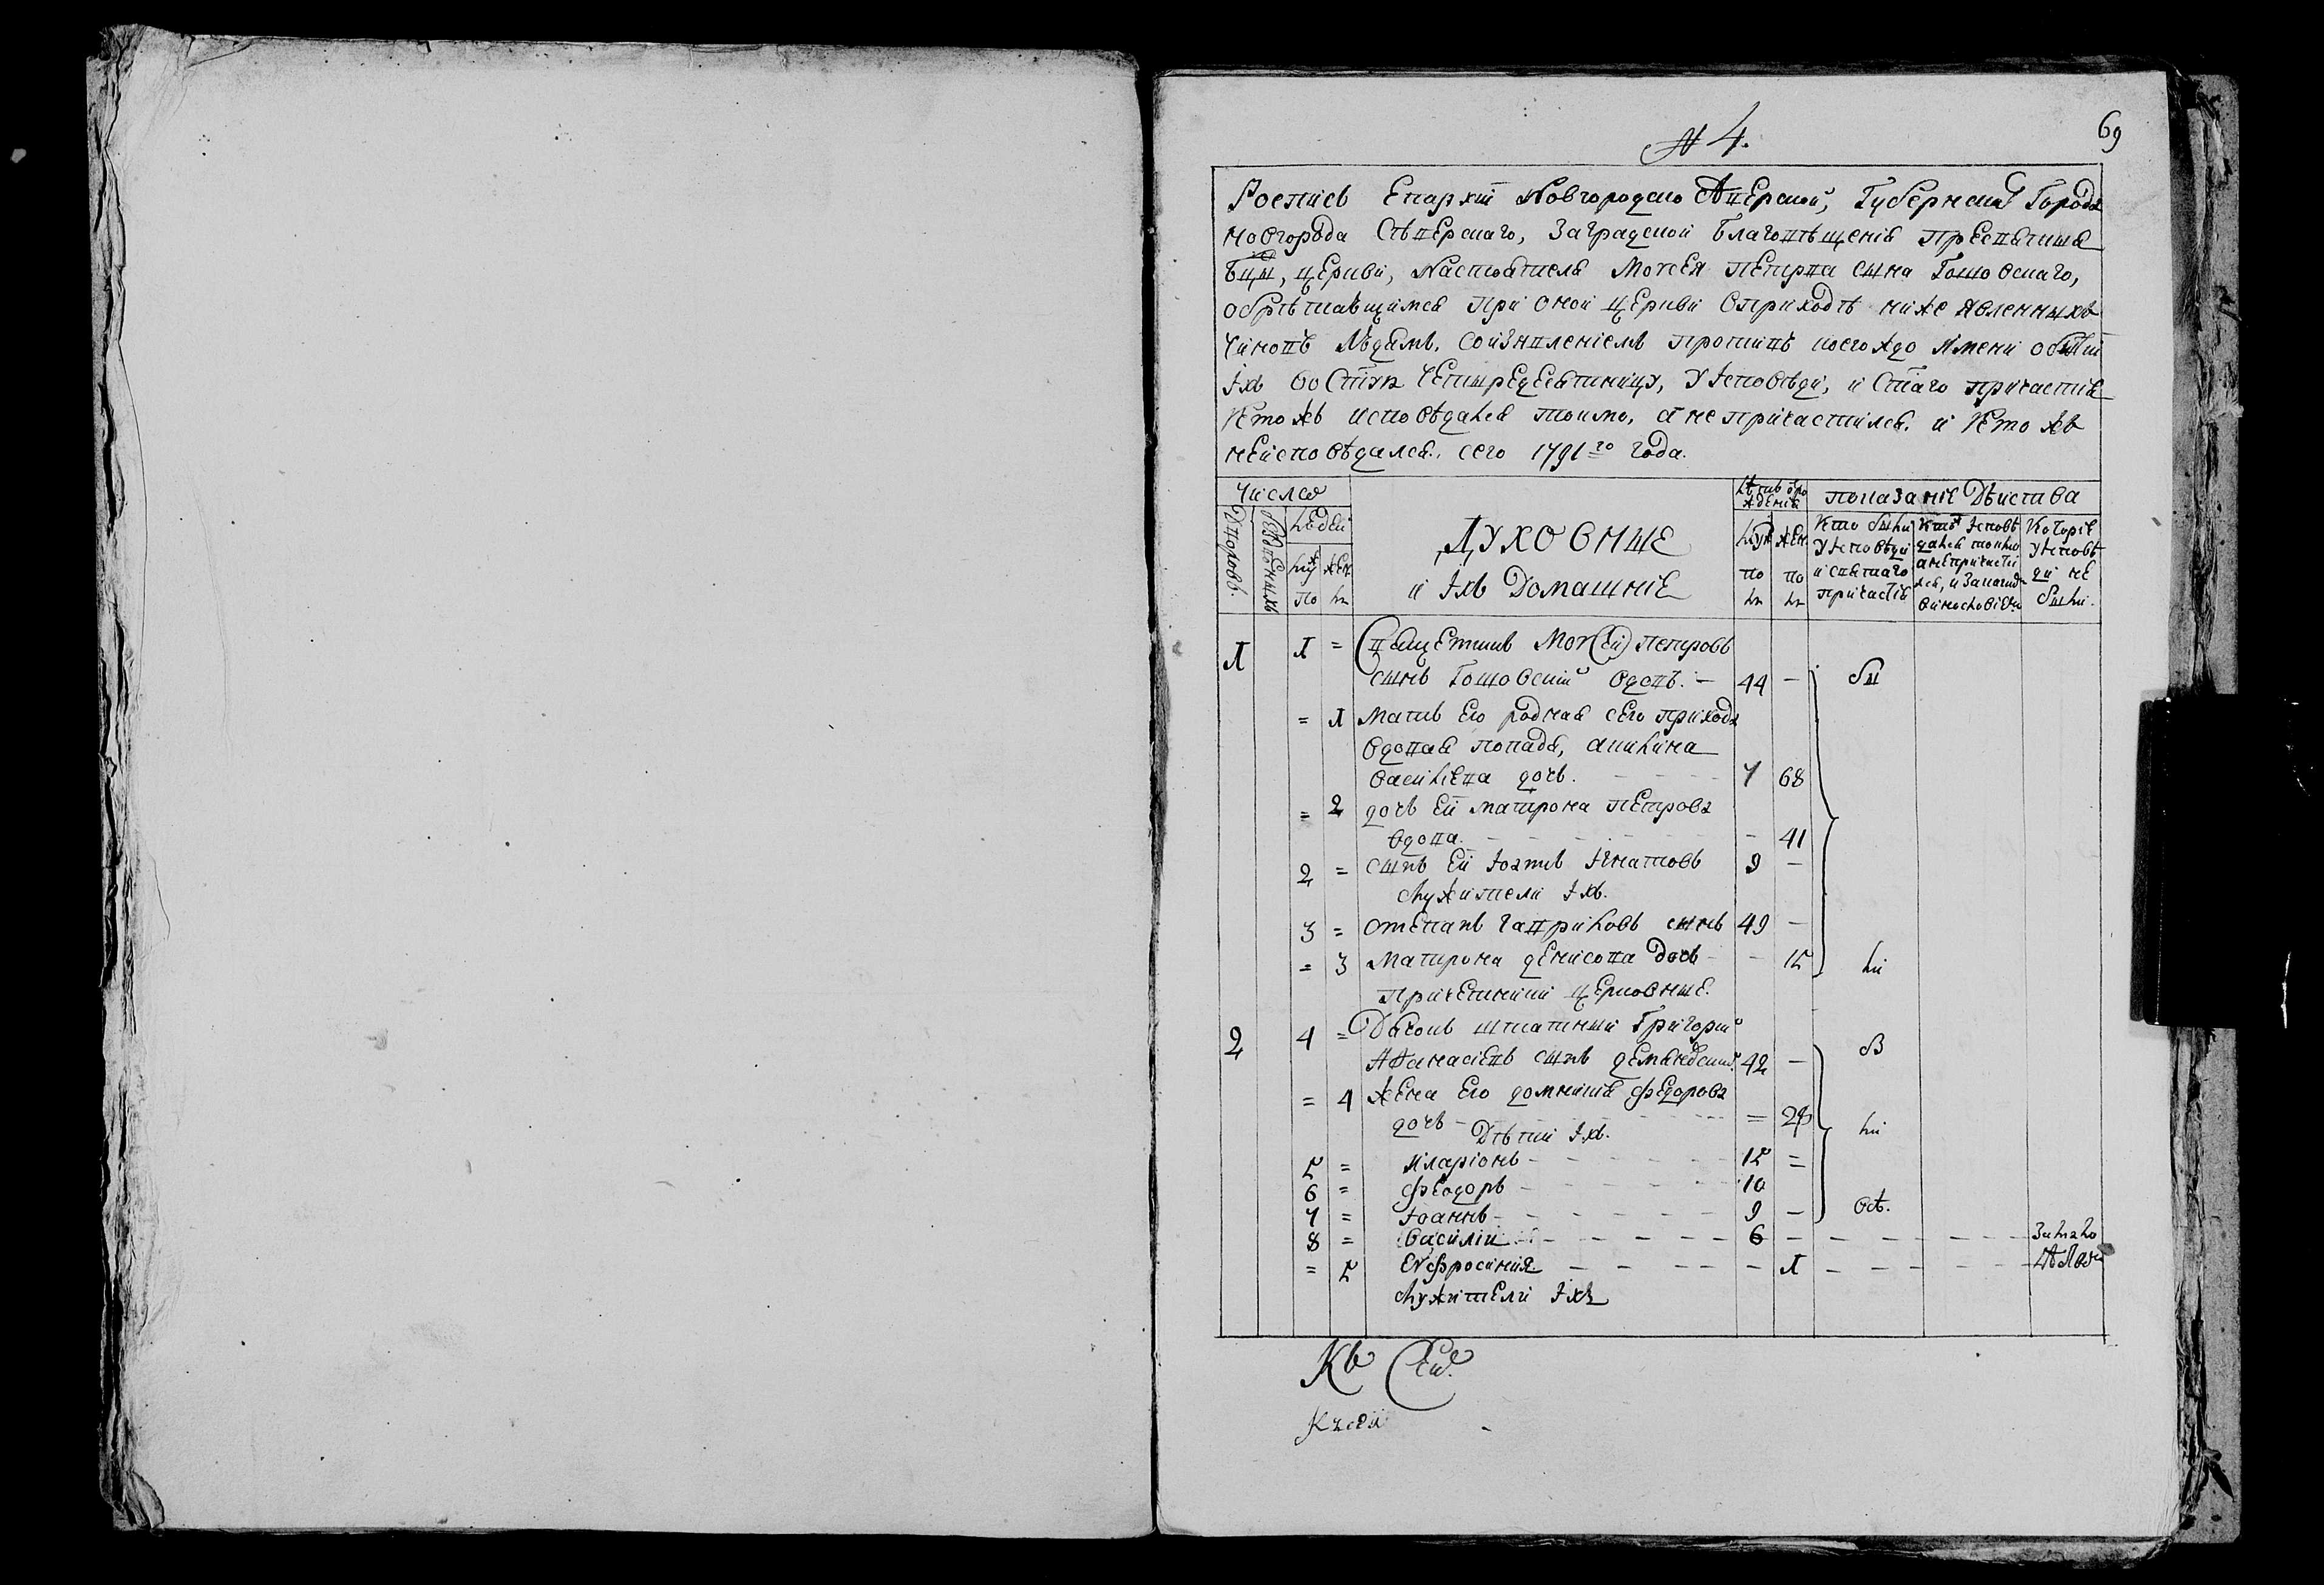 № 4.
69
Роспись Епархіи Новгородско Сѣверской, Губернскаго Города
новгорода Сѣверскаго, Заградской Благовѣщенія пресвятыя
Бцы, церкви, Настоятеля Моѵсея петрва сына Гошовскаго,
обрѣтающимся при оной церкви вприходѣ нижеявленныхъ
чиновъ людямъ, соизъявленіемъ противъ коегождо имени о бытіи
ихъ во Стую четыредесятницу, у Исповѣди, и Стаго причастія
Кто жъ исповѣдался токмо, а не причастился, и Кто жъ
неисповѣдался. сего 1791 го года.
Число
Дворовъ.
людей
муж жен
по ли
Духовные
и Ихъ Домашніе
Лѣта от ро
жденія
муж жен
показаніе Дѣиства
Кто были
у Исповѣди
и святаго
причастія
Кто Исповѣ
дался токмо
а не причасти
лся, и За каким
винословіем
Которіе
у Исповѣ
ди не
были.
1 1 = Священникъ Моѵсей петровъ
сынъ Гошовскій вдовъ. — 44 — бы
= 1 мать его родная сего прихода
вдовая попадя, акилина
василіева дочь. 68
= 2 дочь ей матрона петрова
вдова. — 41
2 = сынъ ей Іоанъ Игнатовъ 9 —
служители Ихъ.
3 = степанъ гавриловъ сынъ 49 —
= 3 матрона денисова дочь — 15 ли
причетники церковные.
2 4 = Дяконъ штатный Григорій
Афанасіевъ сынъ демяновскій 42 — в
= 4 жена его домникія федорова
дочь — = 28 ли
Дѣти Ихъ.
5 = Иларіонъ — 15 =
6 = феодоръ — 10
7 = Іоаннъ — 9 — всѣ.
8 = василій — 6 — За мало
= 5 Еѵфросинія — 1 — лѣтствомъ
служители Ихъ
Къ Сей
К сей